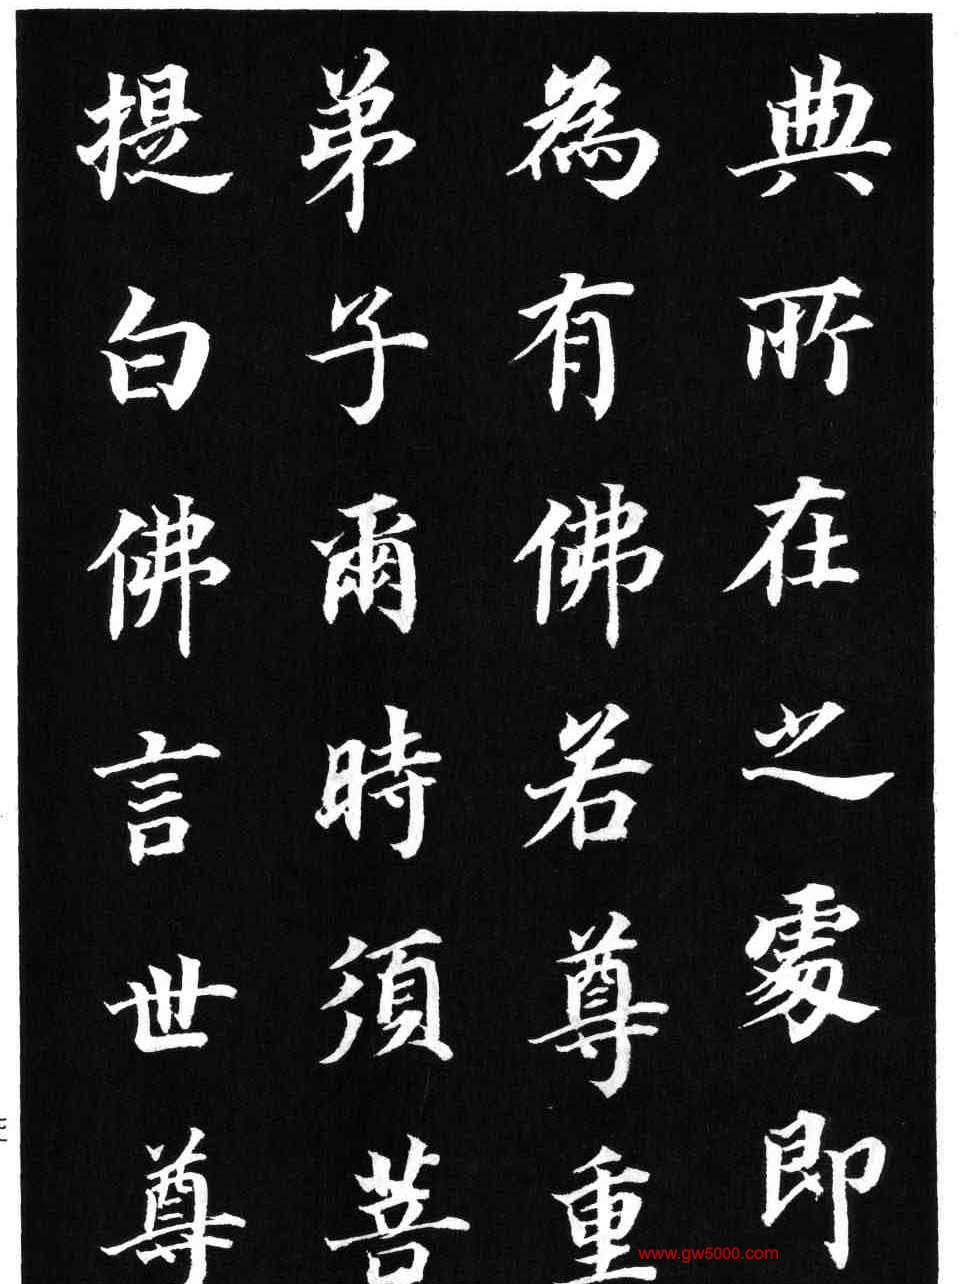 典所在之處即
為有佛若尊重
弟子爾時須菩
提白佛言世尊
www.gw5000.com